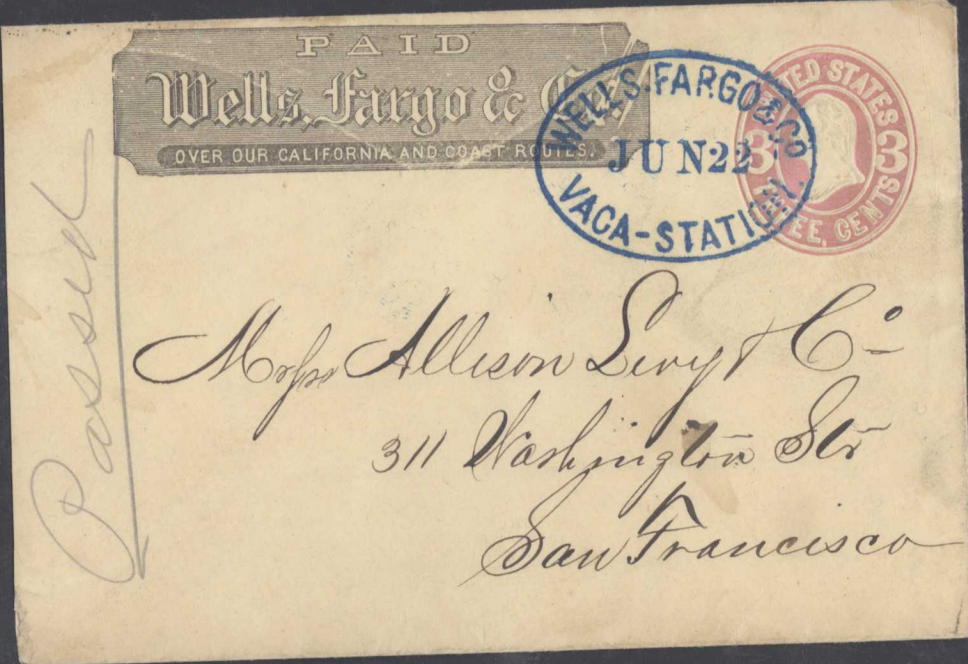 PAID
Wells, Fargo & Co.
OVER OUR CALIFORNIA AND COAST ROUTES.
WELLS. FARGO & CO
JUN 22
VACA-STATION.
UNITED STATES
3 3
THREE CENTS
Passed
Messrs Allison Levy & Co
311 Washington Str
San Francisco